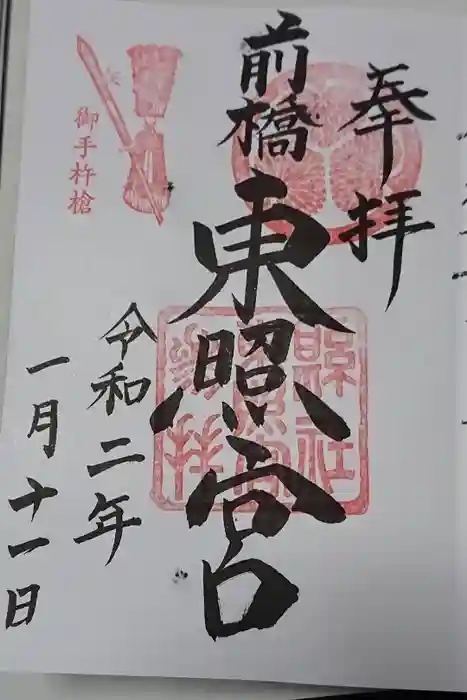 奉拝
前橋
東照宮
令和二年
一月十一日
御手杵槍
縣社
東照宮